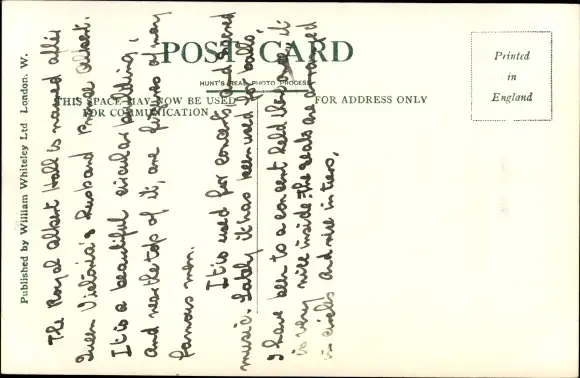 POST CARD
HUNT'S REAL PHOTO PROCESS
THIS SPACE MAY NOW BE USED
FOR COMMUNICATION
FOR ADDRESS ONLY
Printed
in
England
Published by William Whiteley Ltd London. W.
The Royal Albert Hall is named after
Queen Victoria's husband Prince Albert.
It is a beautiful circular building,
and near the top of it, are figures of many
famous men.
It is used for concerts and sacred
music. Lately it has been used for balls.
I have been to a concert held there. It
is very nice inside: the seats are arranged
in circles and rise in tiers,